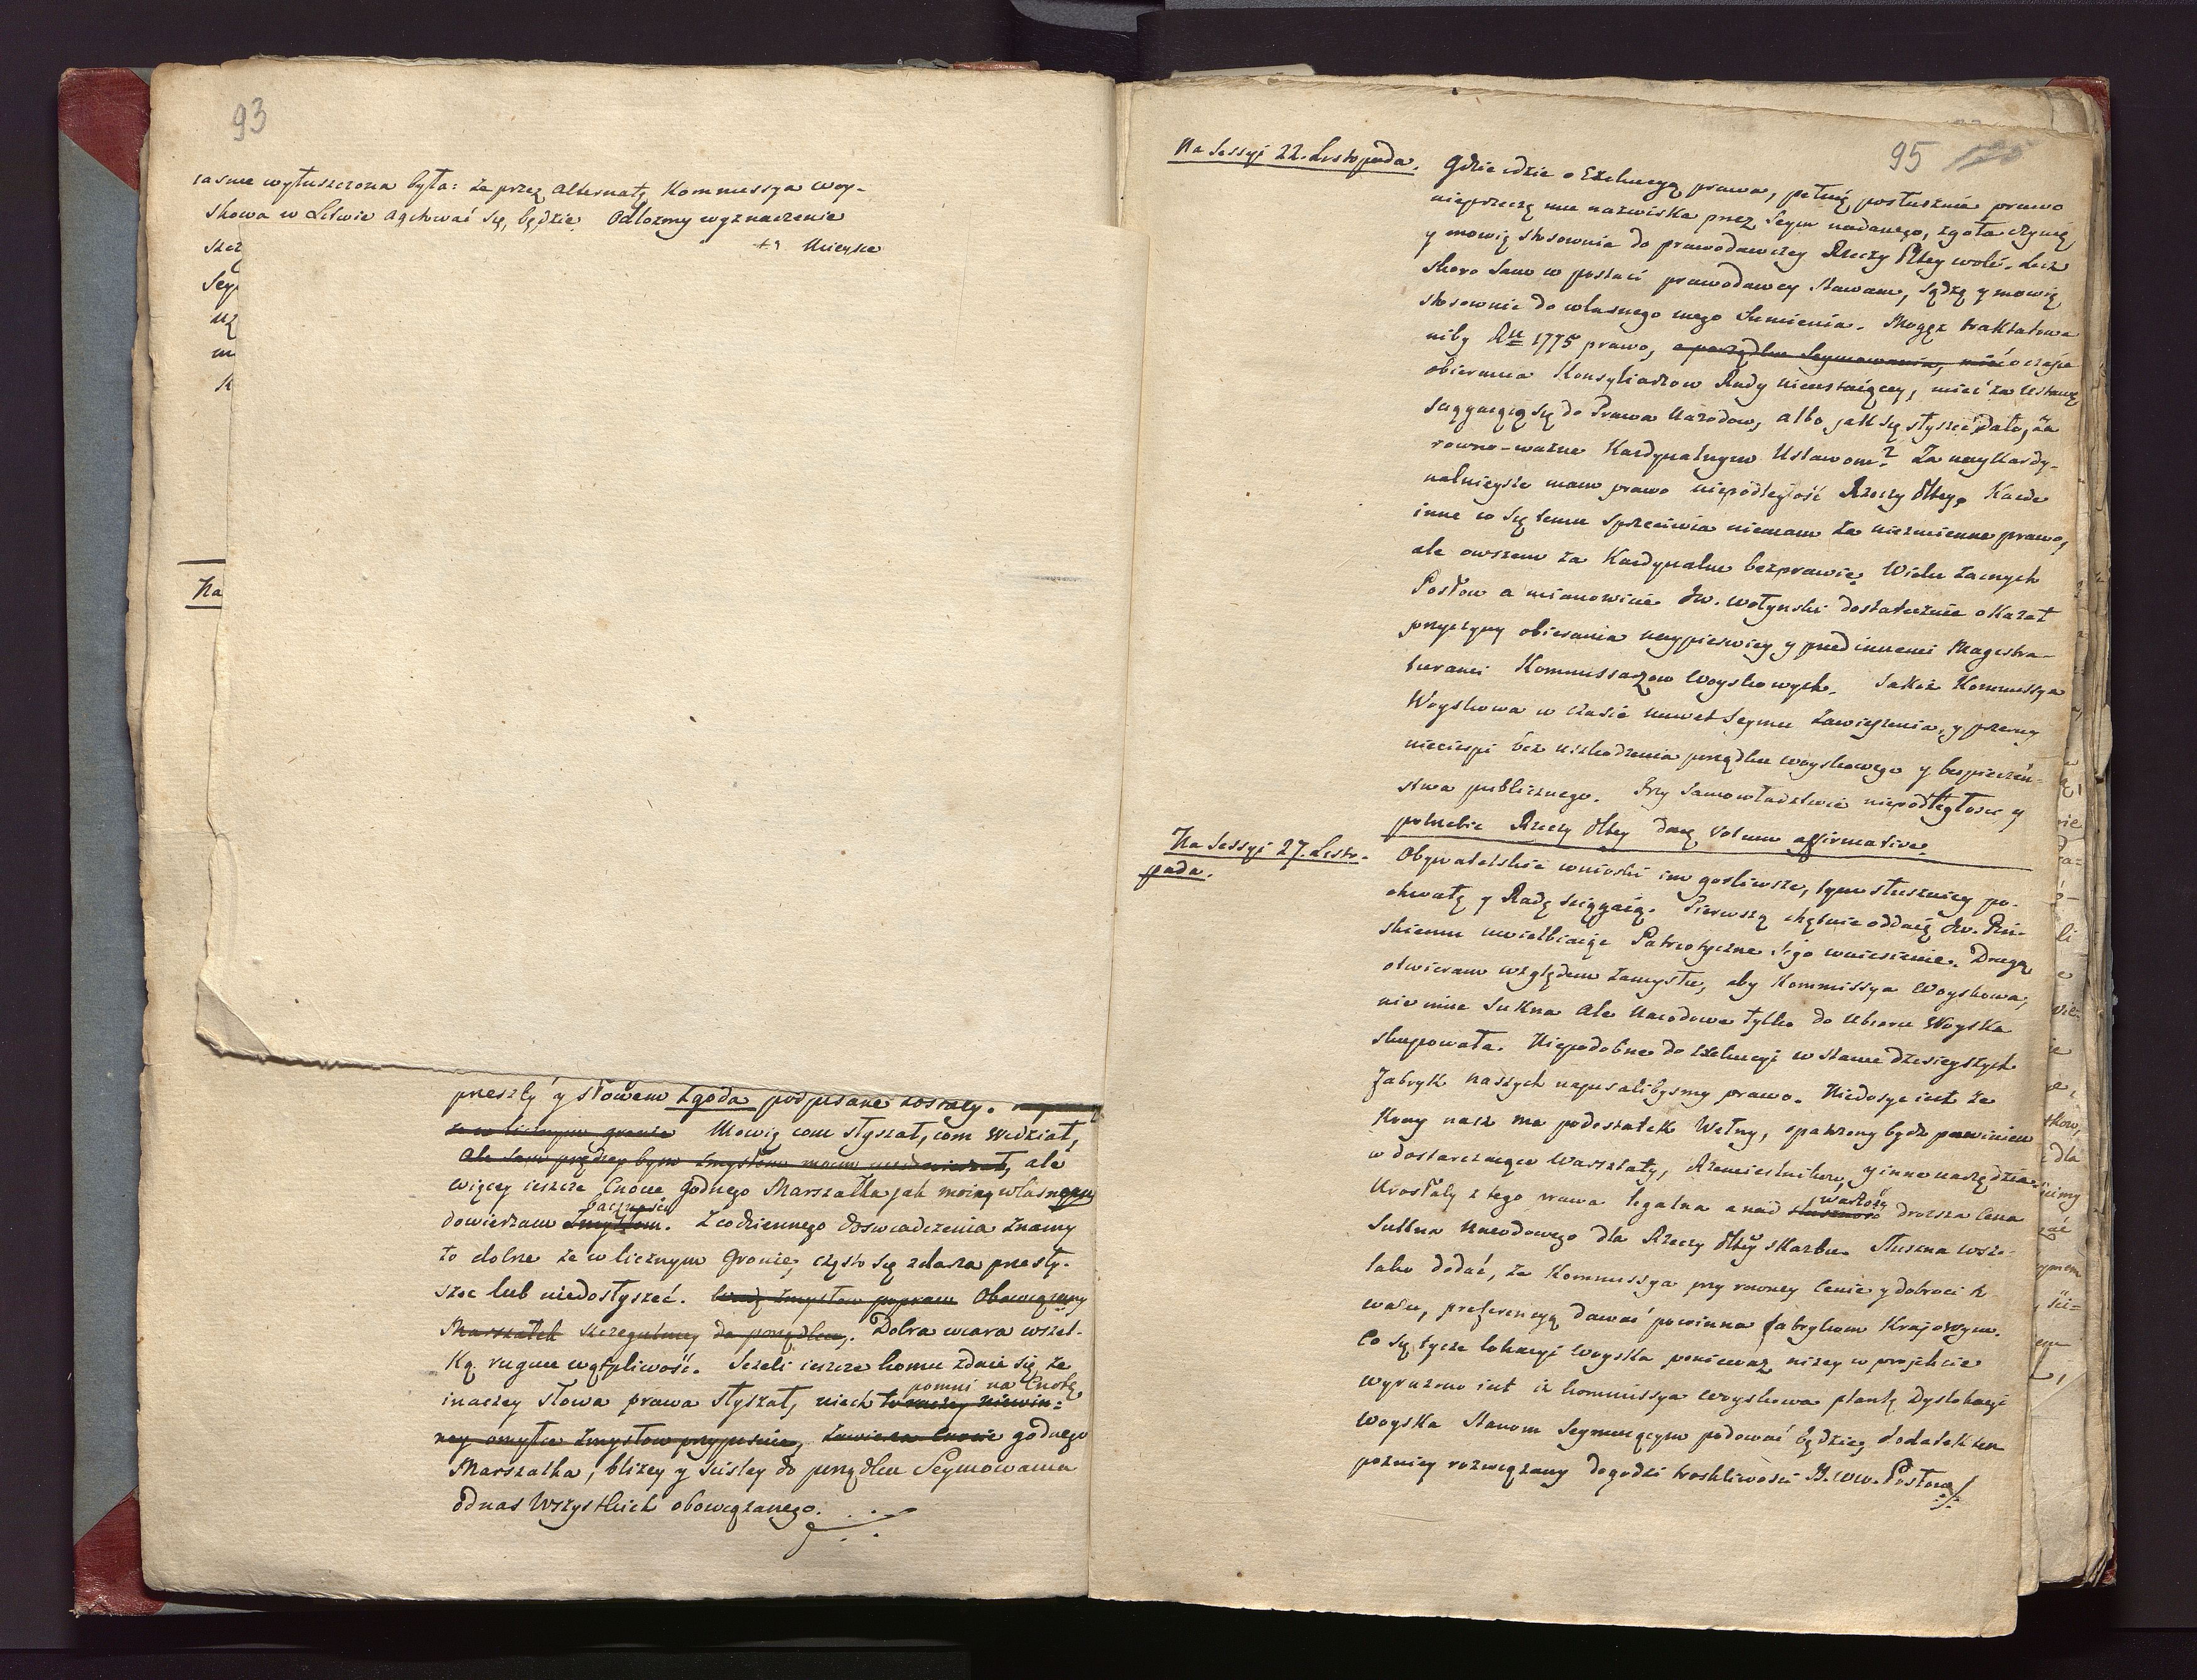 93
iasnie wytłuszczona była: że przez alternatę Kommissya woy-
skowa w Litwie agitować się będzie. Odłożmy wyznaczenie
Mieysce
Na
przeszły y słowem zgoda podpisane zostały.
że w licznym gronie Mowię com słyszał, com widział,
ale sam prędzey bym zmysłom moim niedowierzał, ale
więcey ieszcze Cnocie godnego Marszałka jak moiey własnemu
baczności
dowierzam zmysłom. Z codziennego doswiadczenia znamy
to dobrze że w licznym Gronie, często się zdarza przesły-
szeć lub niedosłyszeć. Obowiązany
Marszałek szczegulniey do porządku. Dobra wiara wszel-
ką ruguie wątpliwość. Jeżeli ieszcze komu zdaie się że
pomni na Cnotę
inaczey słowa prawa słyszał, niech to raczey niewin-
ney omyłce zmysłow przypisuie, godnego
Marszałka, bliżey y sciśley do porządku Seymowania
od nas Wszystkich obowiązanego.
95
Na Sessyi 22. Listopada.
Gdzie idzie o Exekucyą prawa, pełnię posłusznie prawo
nieprzeczę mu nazwiska przez Seym nadanego, zgoła czynię
y mowię stosownie do prawodawczey Rzeczy Pltey woli. Lecz
skoro sam w postaci prawodawcy stawam, sądzę y mowię
stosownie do własnego mego Sumienia. Mogęż traktatowe
niby Ru 1775 prawo, o porządku Seymowania, mieć o czasie
obierania Konsyliarzow Rady nieustaiącey, mieć za Ustawę
sciągaiącą się do Prawa Narodow, albo jak się słyszeć dało, za
rowno-ważne Kardynalnym Ustawom? Za naykardy-
nalnieysze mam prawo niepodległość Rzeczy Pltey. Każde
inne co się temu sprzeciwia niemam za niezmienne prawo,
ale owszem za Kardynalne bezprawie. Wielu zacnych
Posłow a mianowicie Jw. Wołynski dostatecznie okazał
przyczyny obierania naypierwiey y przed innemi Magistra-
turami Kommissarzow Woyskowych. Jakoż Kommissya
Woyskowa w czasie nawet Seymu zawieszenia, y przerwy
niecierpi bez uszkodzenia porządku woyskowego y bespieczeń-
stwa publicznego. Przy Samowładztwie niepodległosci y
potrzebie Rzeczy Pltey daię votum affirmative.
Na Sessyi 27. Listo-
pada.
Obywatelskie wnioski im gorliwsze, tym słuszniey po-
chwałę y Radę sciągaią. Pierwszą chętnie oddaię Jw. Piń-
skiemu uwielbiaiąc Patryotyczne Jego wniesienie. Drugą
otwieram względem zamysłu, aby Kommissya Woyskowa,
nie inne Sukna ale Narodowe tylko do Ubioru Woyska
skupowała. Niepodobne do Exekucyi w stanie dzisieyszych
Fabryk naszych napisalibysmy prawo. Niedosyć iest że
Kray nasz ma podostatek Wełny, opatrzony bydź powinien
w dostarczaiące Warsztaty, Rzemieslnikow, y inne narzędzia.
wartość
Urosłaby z tego prawa legalna a nad słuszność droższa cena
Sukna Narodowego dla Rzeczy Pltey skarbu. Słuszna wsze-
lako dodać, że Kommissya przy rowney Cenie y dobroci t-
waru, preferencyą dawać powinna fabrykom Krajowym.
Co się tycze lokacyi Woyska ponieważ niżey w projekcie
wyrażono iest iż kommissya Woyskowa plantę Dyslokacyi
Woyska Stanom Seymuiącym podawać będzie, dodatek ten
pozniey rozwiązany dogodzi troskliwosci JJ. WW. Posłow